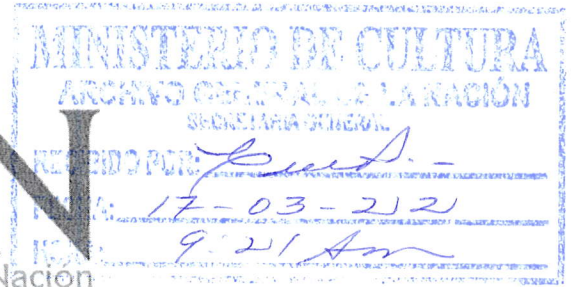 MINISTERIO DE CULTURA
ARCHIVO GENERAL DE LA NACIÓN
SECRETARIA GENERAL
RECIBIDO POR:
17-03-2
9:21 Am
N
Nación